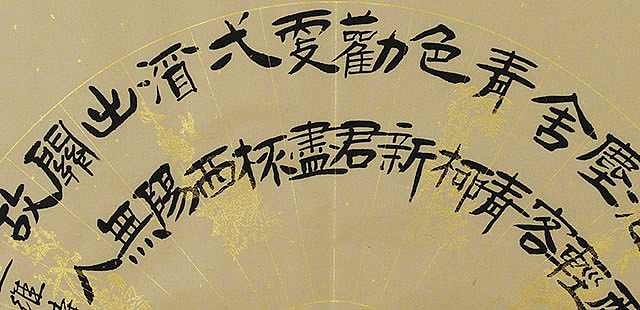 輕塵
客舍青青柳色新
勸君更盡弌杯酒
西出陽關無故人
維